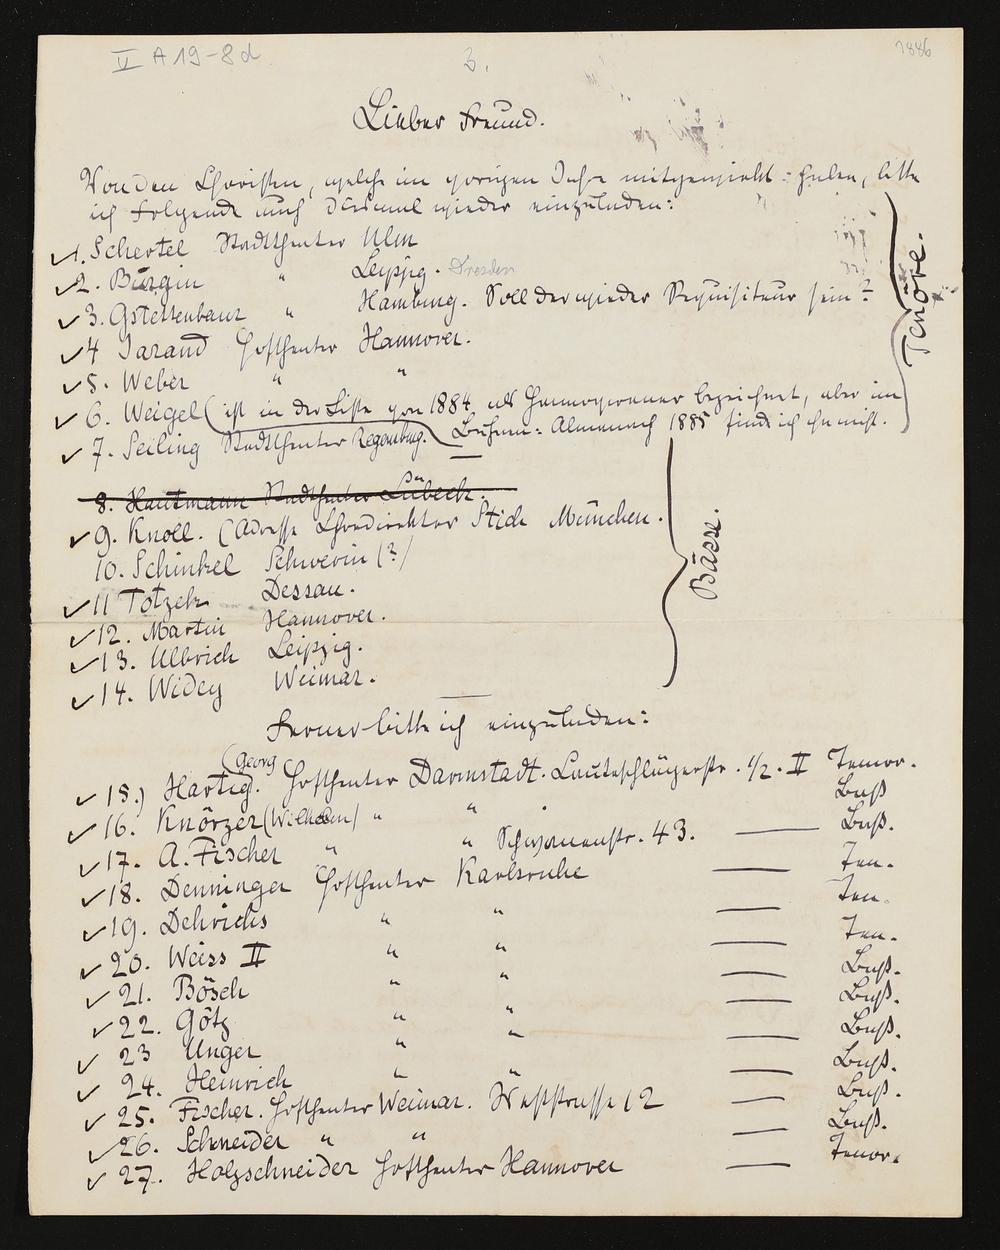 V A 19-8d 3. 1886
Lieber Freund.
Von den Choristen, welche im vorigen Jahre mitgewirkt haben, bitte
ich folgende auch diesmal wieder einzuladen:
1. Schertel Stadttheater Ulm
2. Bürgin " Leipzig. Dresden
3. Gstettenbaur " Hamburg. Soll der wieder Requisiteur sein?
4 Jarand Hoftheater Hannover.
5. Weber " "
6. Weigel (ist in der Liste von 1884 als Hannoveraner bezeichnet, aber im
Bühnen-Almanach 1885 finde ich ihn nicht.
7. Seiling Stadttheater Regensburg.
Tenöre.
8. Hautmann Stadttheater Lübeck.
9. Knoll. (Adresse Chordirektor Stich München.
10. Schinkel Schwerin (?)
11 Totzek Dessau.
12. Martin Hannover.
13. Ulbrich Leipzig.
14. Widey Weimar.
Bässe.
Ferner bitte ich einzuladen:
15.) Hartig. (Georg Hoftheater Darmstadt. Lauteschlägerstr. 1/2. II Tenor.
16. Knörzer (Wilhelm) " " Baß
17. A. Fischer " " 43. — Baß.
18. Denninger Hoftheater Karlsruhe — Ten.
19. Dehrichs " " — Ten.
20. Weiss II " " — Ten.
21. Bösch " " — Baß.
22. Götz " " — Baß.
23 Unger " " — Baß.
24. Heinrich " " — Baß.
25. Fischer. Hoftheater Weimar. Weststrasse 12 — Baß.
26. Schneider " " — Baß.
27. Holzschneider Hoftheater Hannover — Tenor.